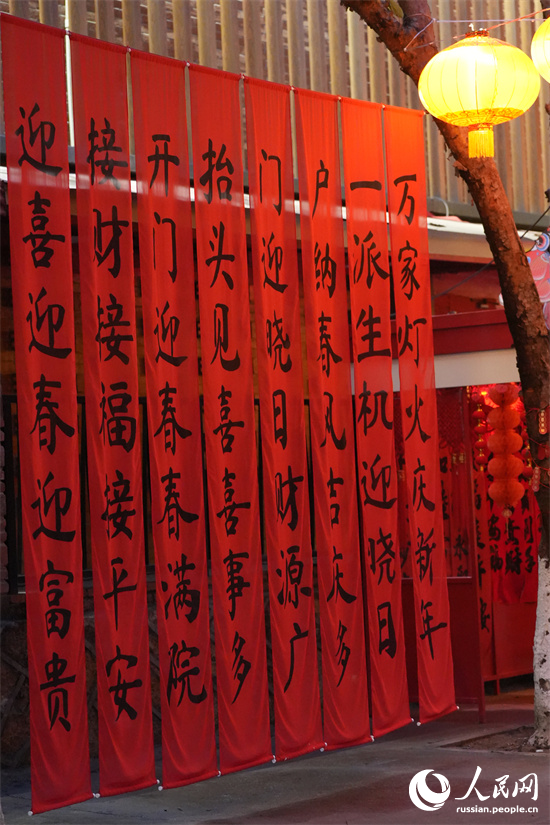 迎喜迎春迎富贵
接财接福接平安
开门迎春春满院
抬头见喜喜事多
门迎晓日财源广
户纳春风吉庆多
一派生机迎晓日
万家灯火庆新年
人民网
russian.people.cn